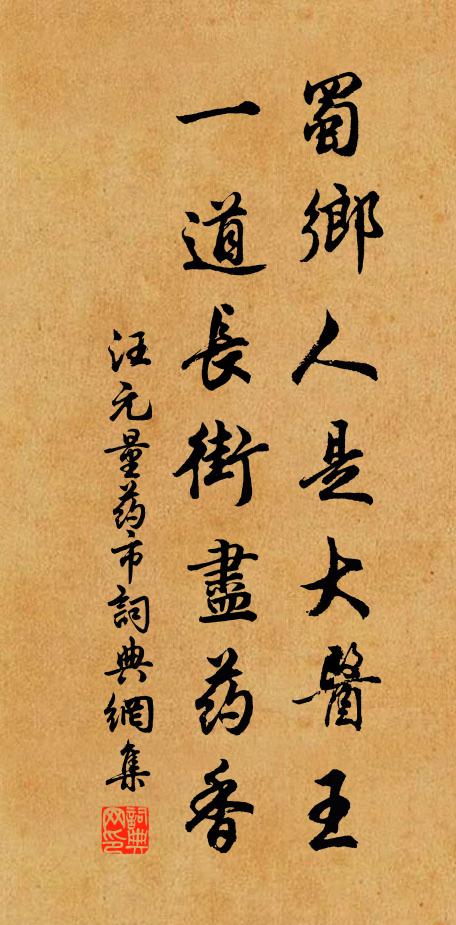 蜀鄉人是大醫王
一道長街盡药香
汪元量药市詞典網集
詞典网印